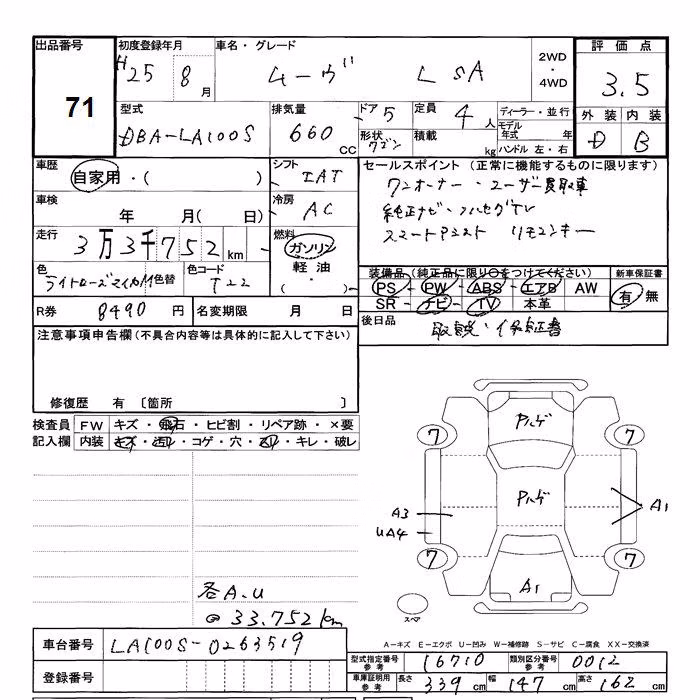 出品番号 初度登録年月 車名・グレード 2WD・4WD 評価点
71 H25 8月 ムーヴ L SA 3.5
型式 排気量 ドア 5 定員 4人 ディーラー・並行 外装 内装
DBA-LA100S 660cc 形状 ワゴン 積載 kg モデル年式 年 ハンドル 左・右 D B
車歴 自家用・( ) シフト IAT セールスポイント (正常に機能するものに限ります)
ワンオーナー・ユーザー買取車
車検 年 月( 日) 冷房 AC 純正ナビ・フルセグTV
走行 3万3千752km 燃料 ガソリン 軽油・( ) スマートアシスト リモコンキー
色 ライトローズマイカM 色替 色コード T22 装備品 (純正品に限り○をつけてください) 新車保証書
PS - PW - ABS - エアB AW 有 無
R券 8490円 名変期限 月 日 SR - ナビ - TV 本革
注意事項申告欄(不具合内容等は具体的に記入して下さい) 後日品 取説・保証書
修復歴 有 〔箇所 〕
検査員 FW キズ・飛石・ヒビ割・リペア跡・×要
記入欄 内装 キズ・汚レ・コゲ・穴・スレ・キレ・破レ
7 Pハゲ 7
Pハゲ
A3 A1
UA4
7 7
A1
各A.U スペア
33.752km
車台番号 LA100S-0263519 A-キズ E-エクボ U-凹み W-補修跡 S-サビ C-腐食 XX-交換済
型式指定番号 参考 16710 類別区分番号 参考 0012
登録番号 車庫証明用 参考 長さ 339cm 幅 147cm 高さ 162cm